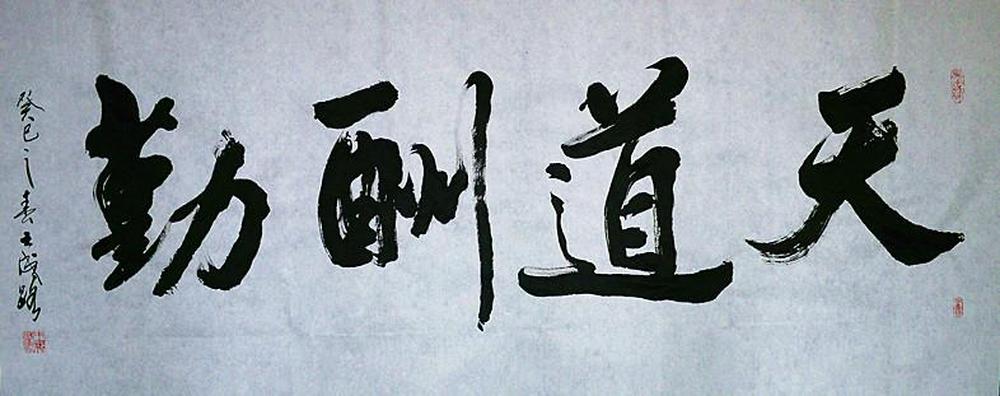 天道酬勤
癸巳之春